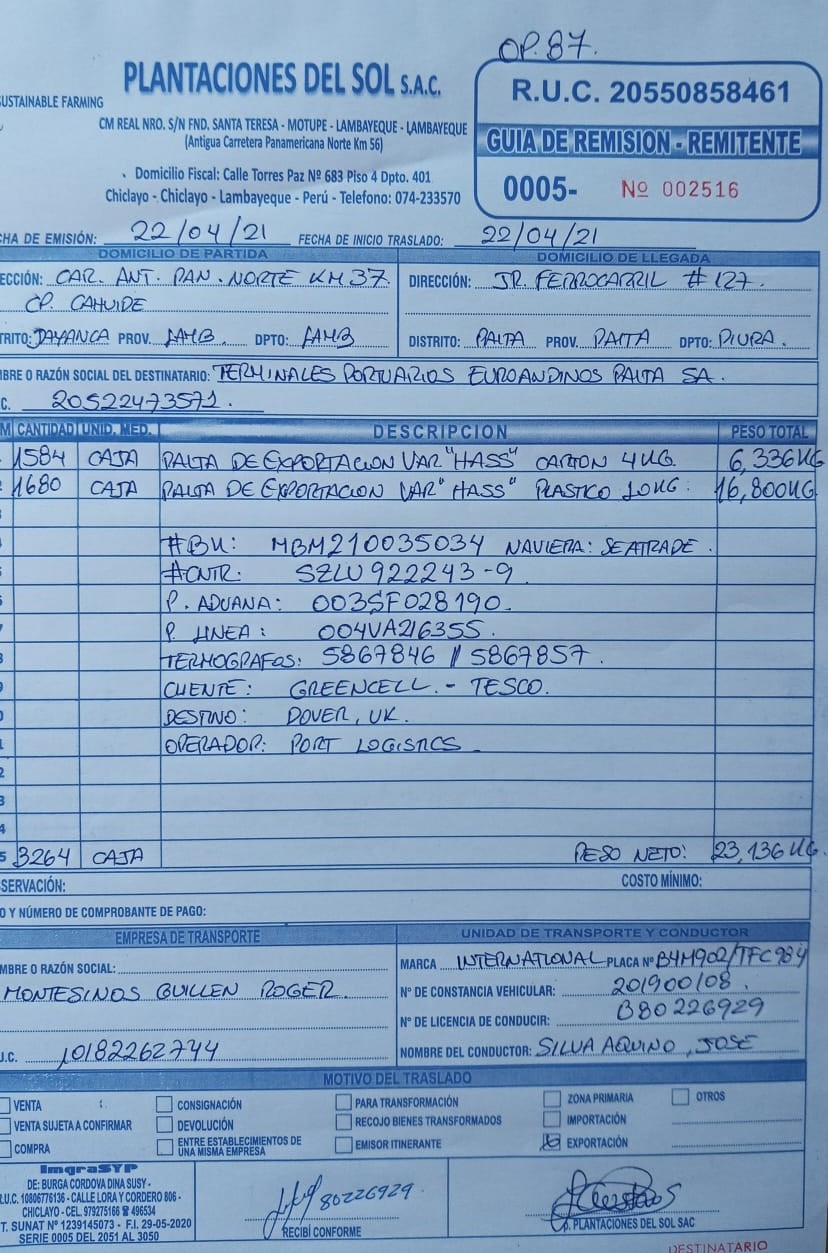 OP.87.
SUSTAINABLE FARMING
PLANTACIONES DEL SOL S.A.C.
CM REAL NRO. S/N FND. SANTA TERESA - MOTUPE - LAMBAYEQUE - LAMBAYEQUE
(Antigua Carretera Panamericana Norte Km 56)
Domicilio Fiscal: Calle Torres Paz Nº 683 Piso 4 Dpto. 401
Chiclayo - Chiclayo - Lambayeque - Perú - Telefono: 074-233570
R.U.C. 20550858461
GUIA DE REMISION - REMITENTE
0005- Nº 002516
HA DE EMISIÓN: 22/04/21 FECHA DE INICIO TRASLADO: 22/04/21
DOMICILIO DE PARTIDA DOMICILIO DE LLEGADA
ECCIÓN: CAR. ANT. PAN. NORTE KM 37. DIRECCIÓN: JR. FERROCARRIL # 127.
CP. CAHUIDE
TRITO: JAYANCA PROV. LAMB. DPTO: LAMB DISTRITO: PAITA PROV. PAITA DPTO: PIURA.
BRE O RAZÓN SOCIAL DEL DESTINATARIO: TERMINALES PORTUARIOS EUROANDINOS PAITA SA.
C. 20522473571.
M CANTIDAD UNID. MED. DESCRIPCION PESO TOTAL
1584 CAJA PALTA DE EXPORTACION VAR "HASS" CARTON 4KG. 6,336KG
1680 CAJA PALTA DE EXPORTACION VAR "HASS" PLASTICO 10KG. 16,800KG
#BK: MBM210035034 NAVIERA: SEATRADE.
#CNTR: SZLU 922243-9
P. ADUANA: 003SF028190.
P. LINEA: 004VA216355.
TERMOGRAFOS: 5867846 // 5867857.
CLIENTE: GREENCELL. - TESCO.
DESTINO: DOVER, UK.
OPERADOR: PORT LOGISTICS
2
3
4
5 3264 CAJA PESO NETO: 23,136KG.
SERVACIÓN: COSTO MÍNIMO:
O Y NÚMERO DE COMPROBANTE DE PAGO:
EMPRESA DE TRANSPORTE UNIDAD DE TRANSPORTE Y CONDUCTOR
MBRE O RAZÓN SOCIAL: MARCA INTERNATIONAL PLACA Nº B4M902/TFC984
MONTESINOS GUILLEN ROGER. Nº DE CONSTANCIA VEHICULAR: 201900108.
Nº DE LICENCIA DE CONDUCIR: B80226929
U.C. 10182262744 NOMBRE DEL CONDUCTOR: SILVA AQUINO, JOSE
MOTIVO DEL TRASLADO
VENTA CONSIGNACIÓN PARA TRANSFORMACIÓN ZONA PRIMARIA OTROS
VENTA SUJETA A CONFIRMAR DEVOLUCIÓN RECOJO BIENES TRANSFORMADOS IMPORTACIÓN
COMPRA ENTRE ESTABLECIMIENTOS DE UNA MISMA EMPRESA EMISOR ITINERANTE EXPORTACIÓN
ImgraSYP
DE: BURGA CORDOVA DINA SUSY -
.U.C. 10806776136 - CALLE LORA Y CORDERO 806 -
CHICLAYO - CEL. 979275166 ☎ 496534
T. SUNAT Nº 1239145073 - F.I. 29-05-2020
SERIE 0005 DEL 2051 AL 3050
80226929
RECIBÍ CONFORME
p. PLANTACIONES DEL SOL SAC
DESTINATARIO